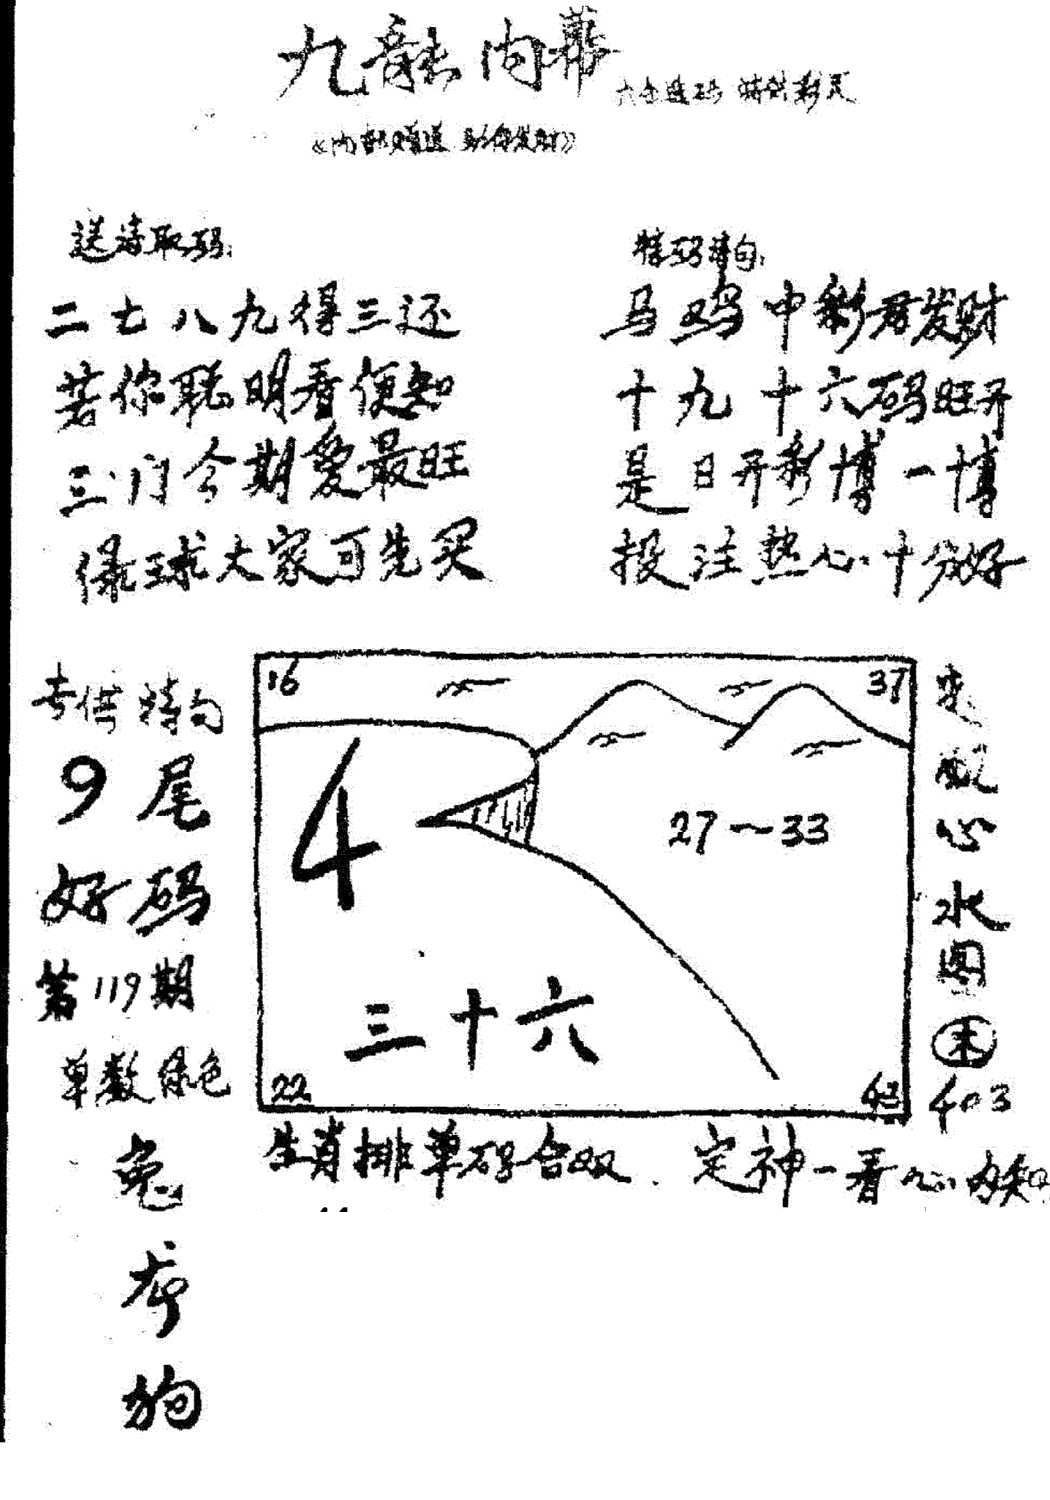 九龍内幕
六合造码 特供彩民
《内部赠送 助你发财》
送诗取码:
二七八九得三还
若你聪明看便知
三门今期爱最旺
绿球大家可先买
特码诗句:
马鸡中彩君发财
十九十六码旺开
是日开彩博一博
投注热心十分好
专供特句
9尾
好码
第119期
单数绿色
兔
虎
狗
16
37
4
27～33
三十六
22
43
心水图
403
生肖排单码合双 定神一看心内知